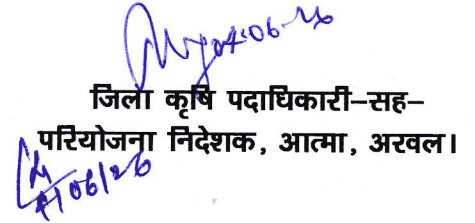 04.06.26
जिला कृषि पदाधिकारी–सह–
परियोजना निदेशक, आत्मा, अरवल।